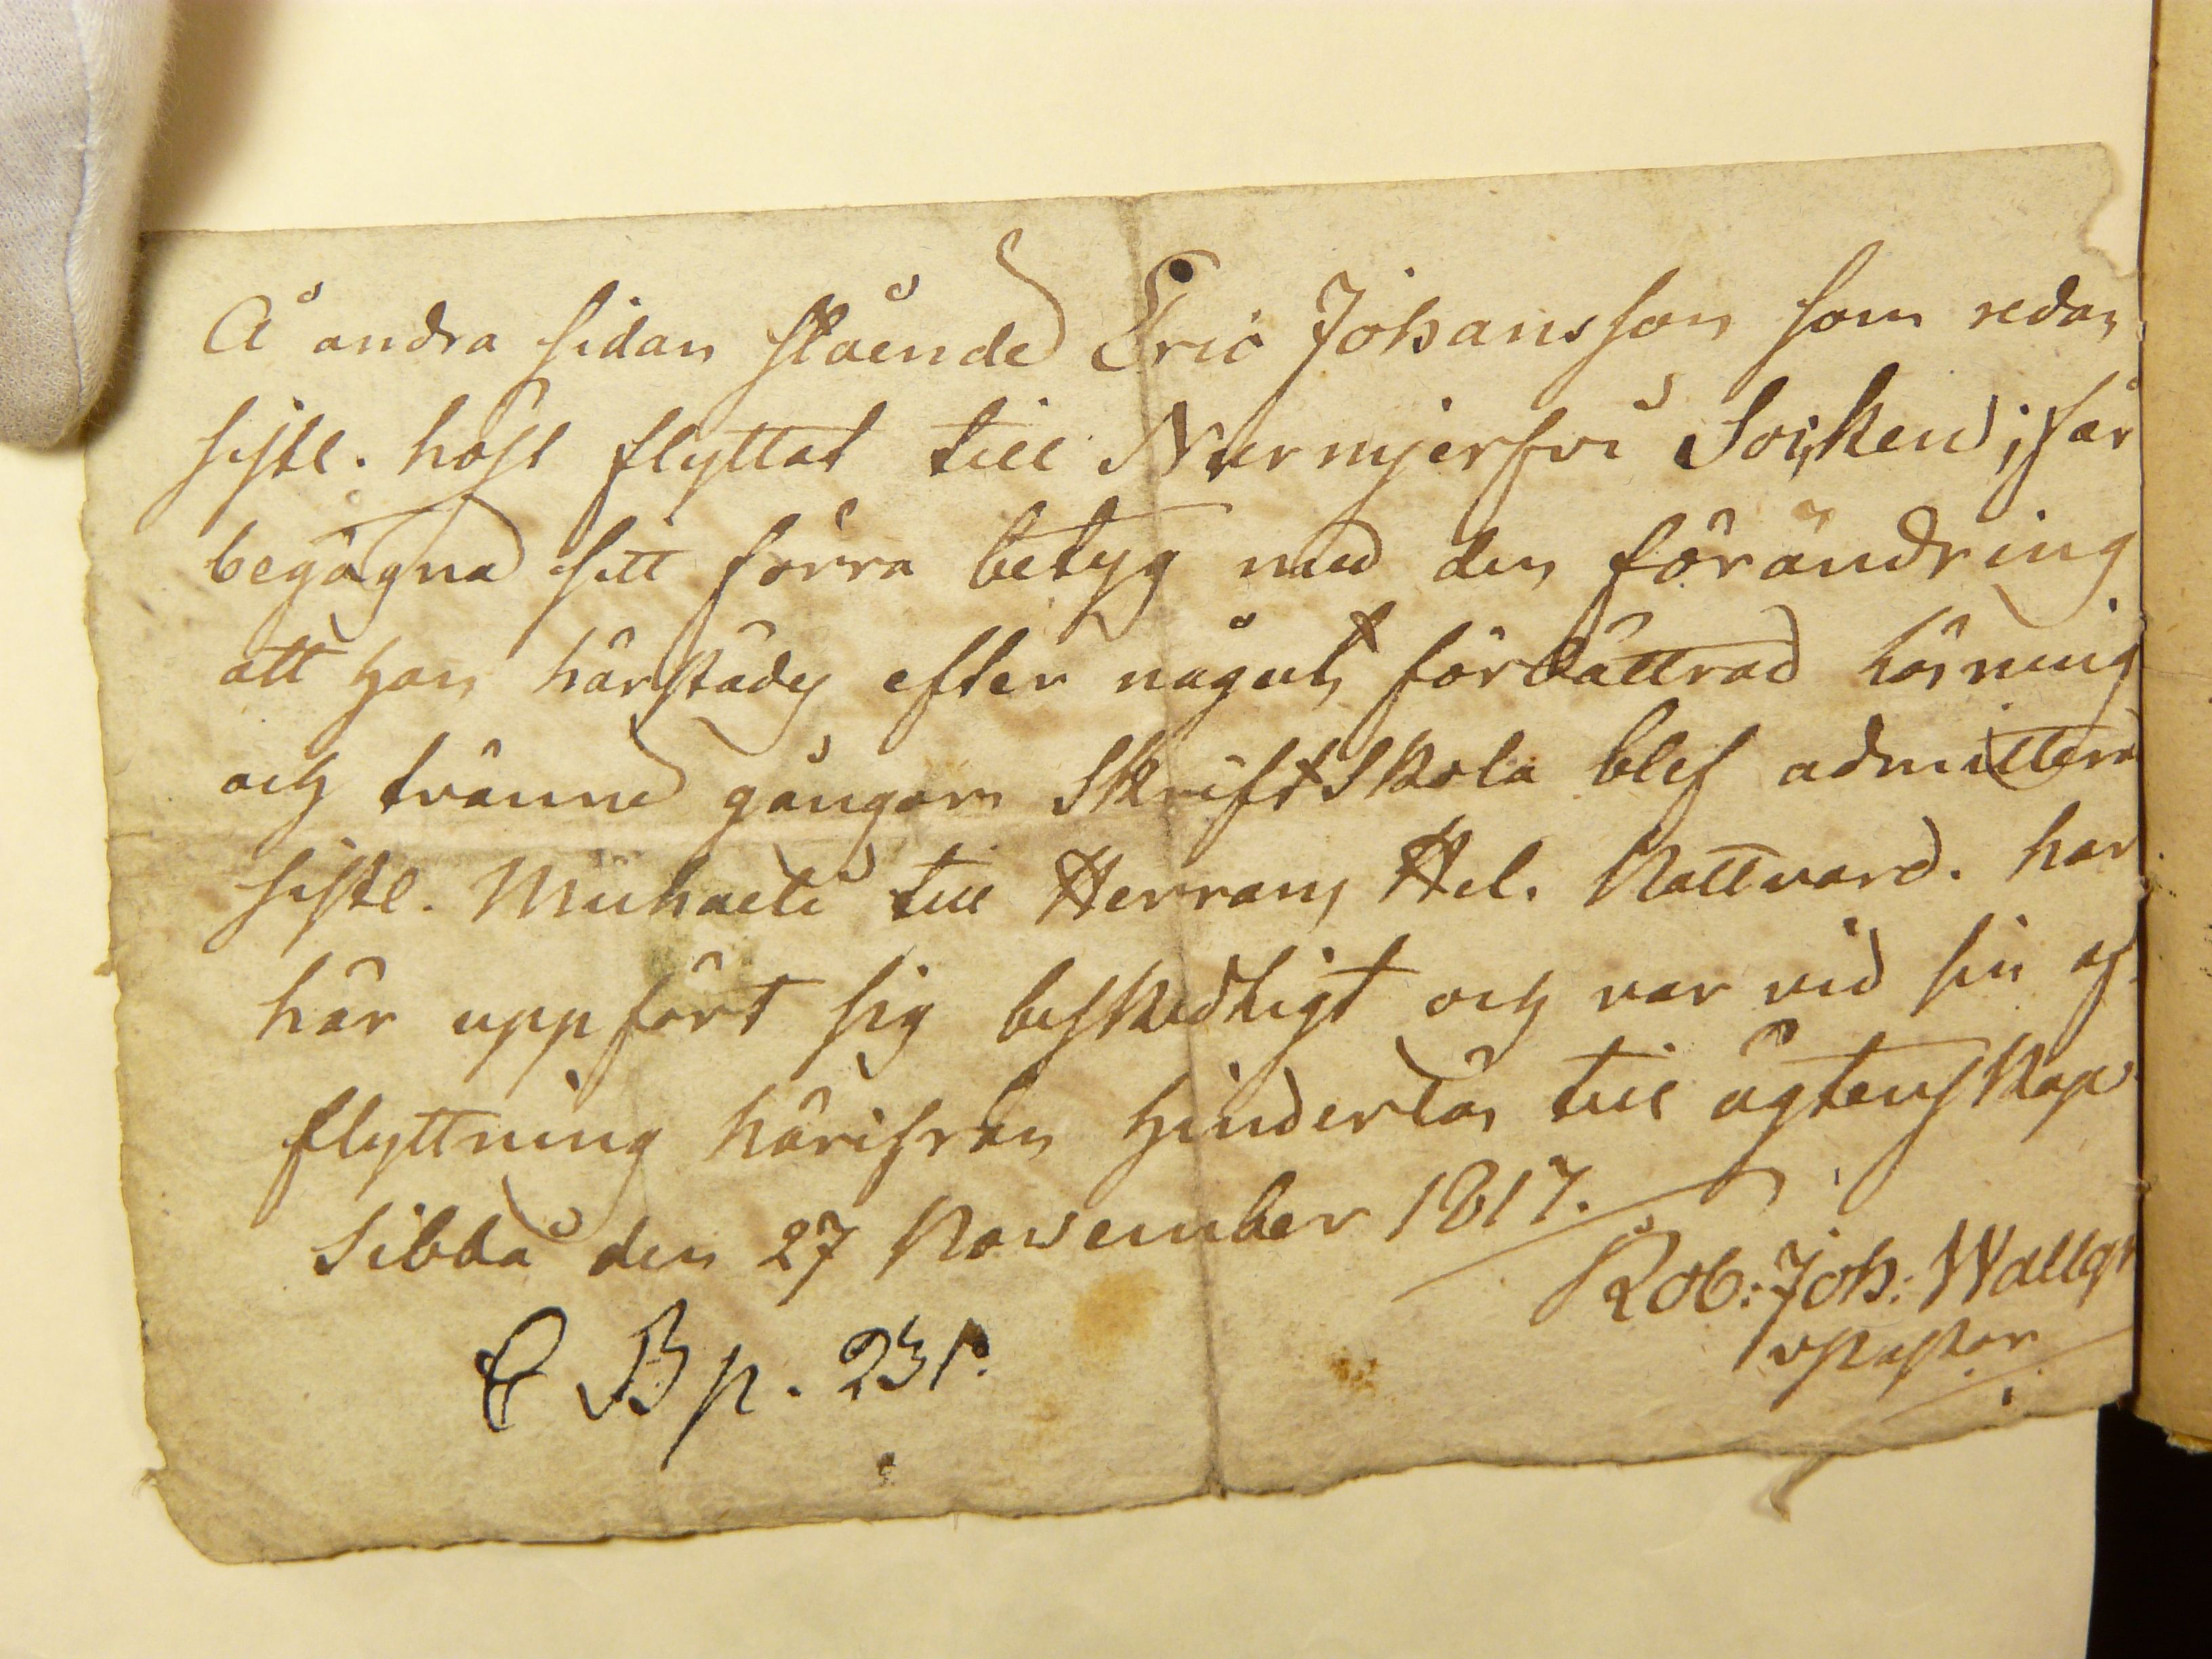 Å andra sidan stående Eric Johansson som redan
sistl. höst flyttat till Nurmjerfvi Socken, får
begagna sitt förra betyg med den förändring
att han härstädes efter någon förbättrad läsning
och tvänne gångors Skriftskola blef admitterad
sistl. Michaeli till Herrans Hel. Nattvard. har
här uppfört sig beskedligt och var vid sin af-
flyttning härifrån hinderlös till ägtenskap
Sibbo den 27 November 1817.
Rob: Joh: Wallgr
v Pastor
C B p. 231.